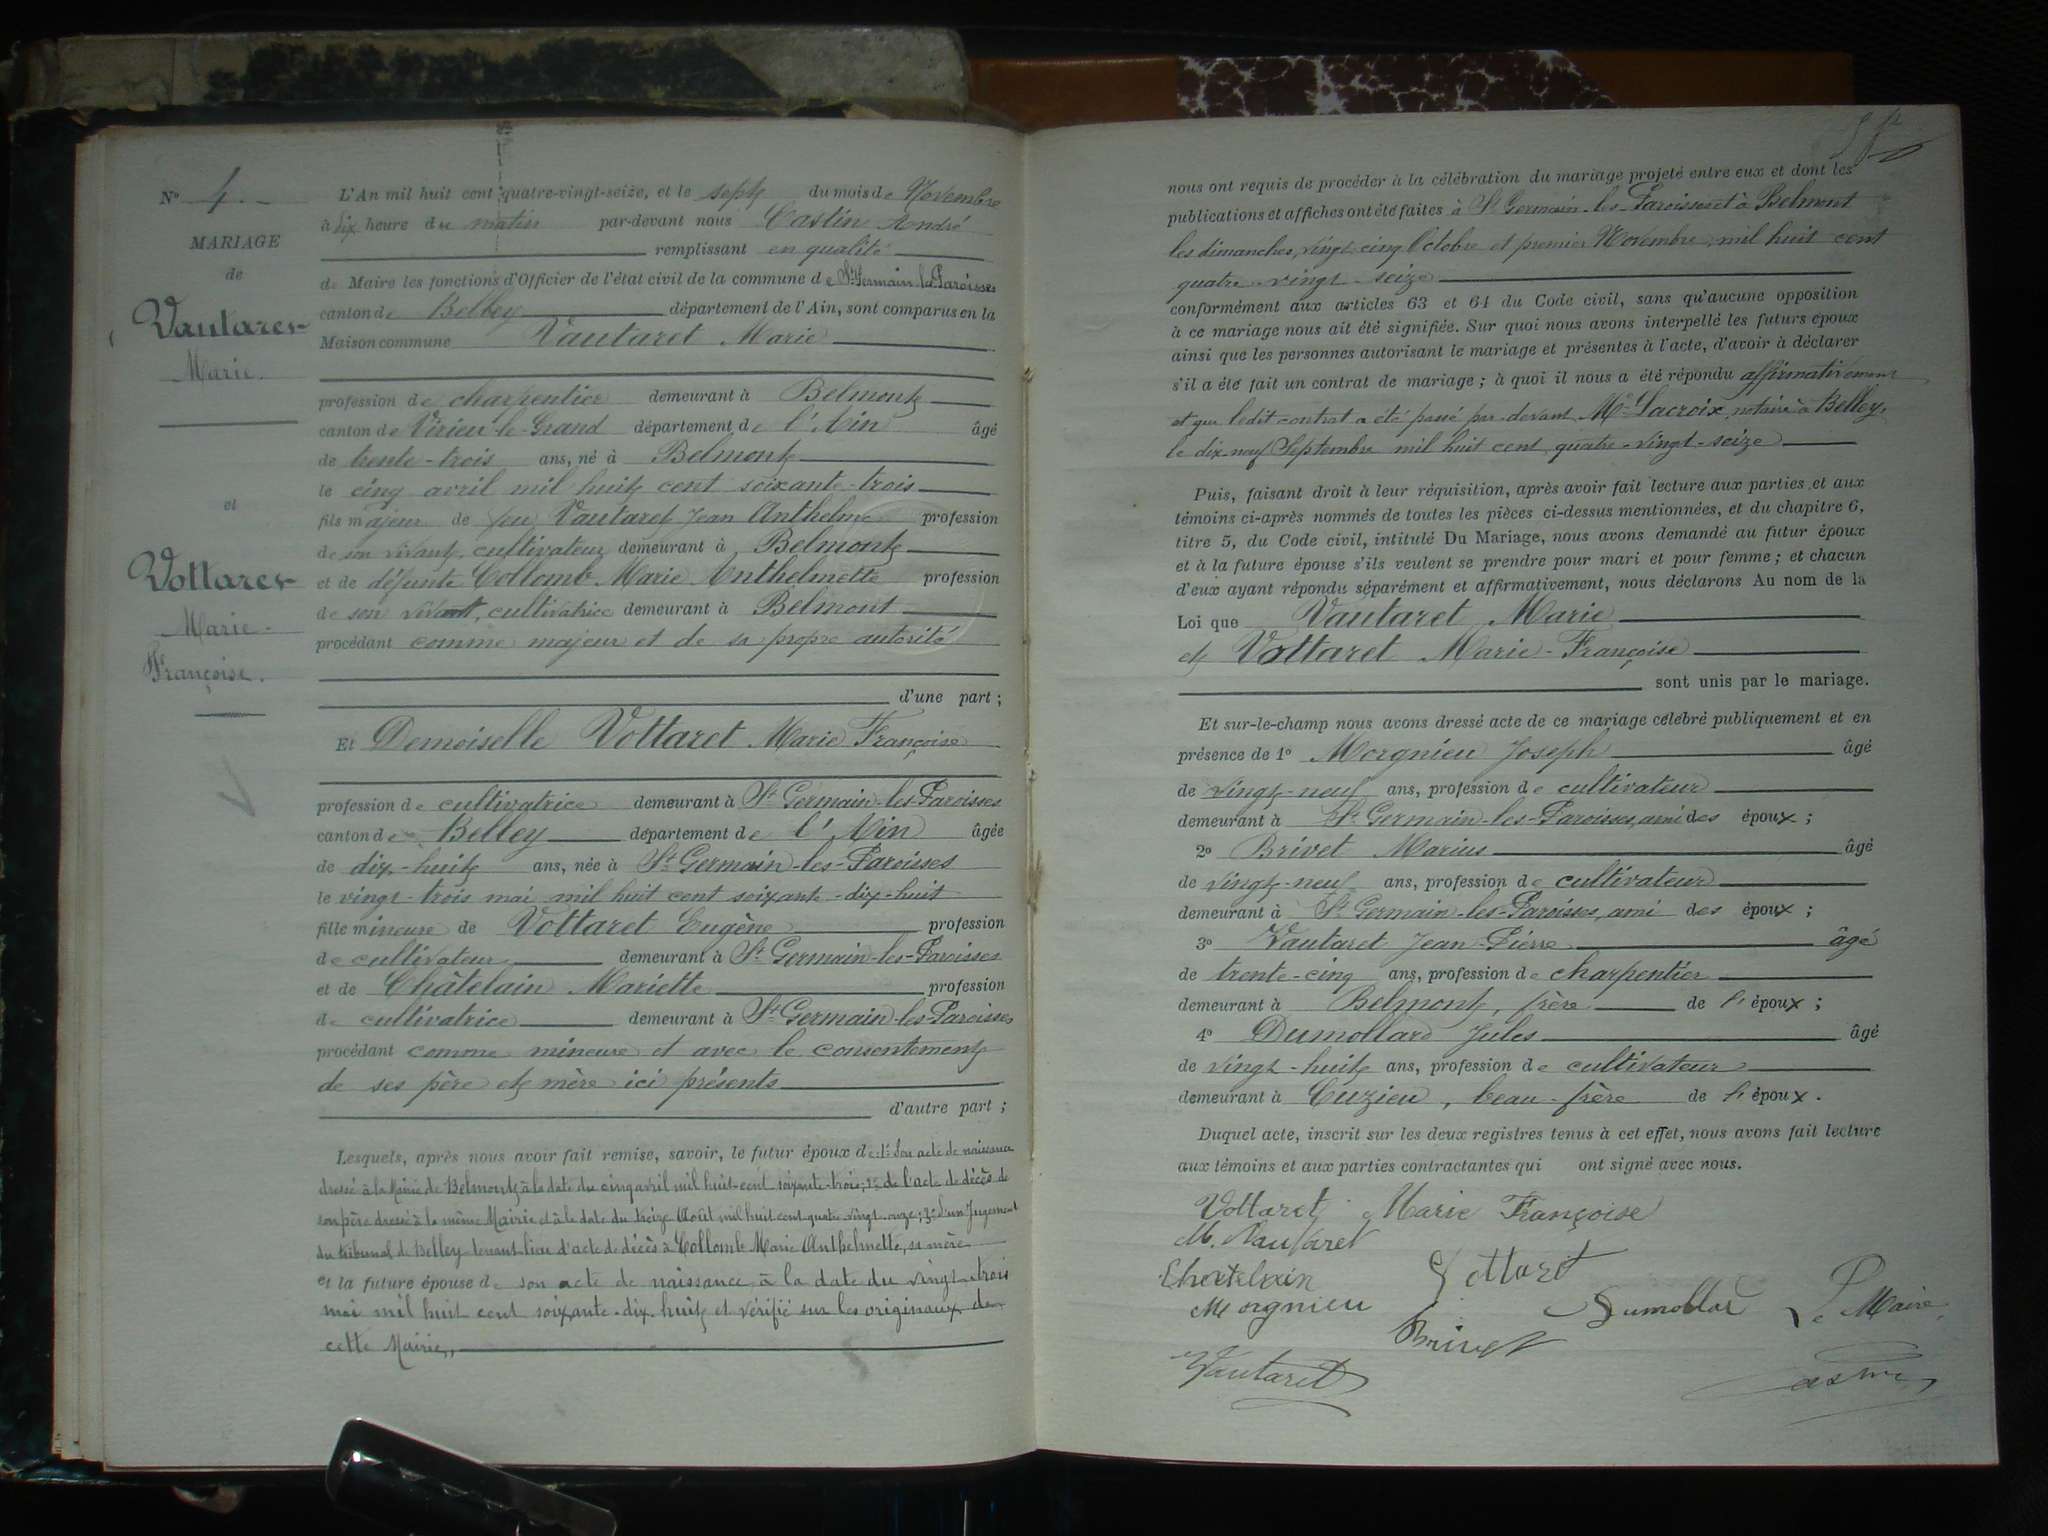 N° 4.
MARIAGE
de
Vautaret
Marie.
et
Vottaret
Marie-
Françoise.
L'An mil huit cent quatre-vingt-seize, et le sept du mois de Novembre
à dix heure du matin par-devant nous Castin André
remplissant en qualité
de Maire les fonctions d'Officier de l'état civil de la commune de St Germain-les-Paroisses
canton de Belley département de l'Ain, sont comparus en la
Maison commune Vautaret Marie
profession de charpentier demeurant à Belmont
canton de Virieu-le-Grand département de l'Ain âgé
de trente-trois ans, né à Belmont
le cinq avril mil huit cent soixante-trois
fils majeur de feu Vautaret Jean Anthelme profession
de son vivant, cultivateur demeurant à Belmont
et de défunte Collomb Marie Anthelmette profession
de son vivant, cultivatrice demeurant à Belmont
procédant comme majeur et de sa propre autorité
d'une part ;
Et Demoiselle Vottaret Marie Françoise
profession de cultivatrice demeurant à St Germain-les-Paroisses
canton de Belley département de l'Ain âgée
de dix-huit ans, née à St Germain-les-Paroisses
le vingt-trois mai mil huit cent soixante-dix-huit
fille mineure de Vottaret Eugène profession
de cultivateur demeurant à St Germain-les-Paroisses
et de Châtelain Mariette profession
de cultivatrice demeurant à St Germain-les-Paroisses
procédant comme mineure et avec le consentement
de ses père et mère ici présents
d'autre part ;
Lesquels, après nous avoir fait remise, savoir, le futur époux de: 1° Son acte de naissance
dressé à la Mairie de Belmont à la date du cinq avril mil huit-cent soixante-trois; 2° de l'acte de décès de
son père dressé à la même Mairie et à la date du treize Août mil huit cent quatre-vingt-onze; 3° d'un Jugement
du tribunal de Belley tenant lieu d'acte de décès à Collomb Marie Anthelmette, sa mère
et la future épouse de son acte de naissance à la date du vingt-trois
mai mil huit cent soixante-dix-huit et vérifié sur les originaux de
cette Mairie,
nous ont requis de procéder à la célébration du mariage projeté entre eux et dont les
publications et affiches ont été faites à St Germain-les-Paroisses et à Belmont
les dimanches, vingt-cinq Octobre et premier Novembre, mil huit cent
quatre-vingt-seize
conformément aux articles 63 et 64 du Code civil, sans qu'aucune opposition
à ce mariage nous ait été signifiée. Sur quoi nous avons interpellé les futurs époux
ainsi que les personnes autorisant le mariage et présentes à l'acte, d'avoir à déclarer
s'il a été fait un contrat de mariage ; à quoi il nous a été répondu affirmativement
et que ledit contrat a été passé par-devant Me Lacroix, notaire à Belley,
le dix-neuf Septembre mil huit cent quatre-vingt-seize
Puis, faisant droit à leur réquisition, après avoir fait lecture aux parties et aux
témoins ci-après nommés de toutes les pièces ci-dessus mentionnées, et du chapitre 6,
titre 5, du Code civil, intitulé Du Mariage, nous avons demandé au futur époux
et à la future épouse s'ils veulent se prendre pour mari et pour femme ; et chacun
d'eux ayant répondu séparément et affirmativement, nous déclarons Au nom de la
Loi que Vautaret Marie
et Vottaret Marie-Françoise
sont unis par le mariage.
Et sur-le-champ nous avons dressé acte de ce mariage célébré publiquement et en
présence de 1° Morgnieu Joseph âgé
de vingt-neuf ans, profession de cultivateur
demeurant à St Germain-les-Paroisses, ami des époux ;
2° Brivet Marius âgé
de vingt-neuf ans, profession de cultivateur
demeurant à St Germain-les-Paroisses, ami des époux ;
3° Vautaret Jean-Pierre âgé
de trente-cinq ans, profession de charpentier
demeurant à Belmont, frère de l'époux ;
4° Dumollard Jules âgé
de vingt-huit ans, profession de cultivateur
demeurant à Cuzieu, beau-frère de l'époux.
Duquel acte, inscrit sur les deux registres tenus à cet effet, nous avons fait lecture
aux témoins et aux parties contractantes qui ont signé avec nous.
Vottaret Marie Françoise
M. Vautaret
Chatelain Vottaret
Morgnieu Dumollard Le Maire,
Brivet
Vautaret Castin